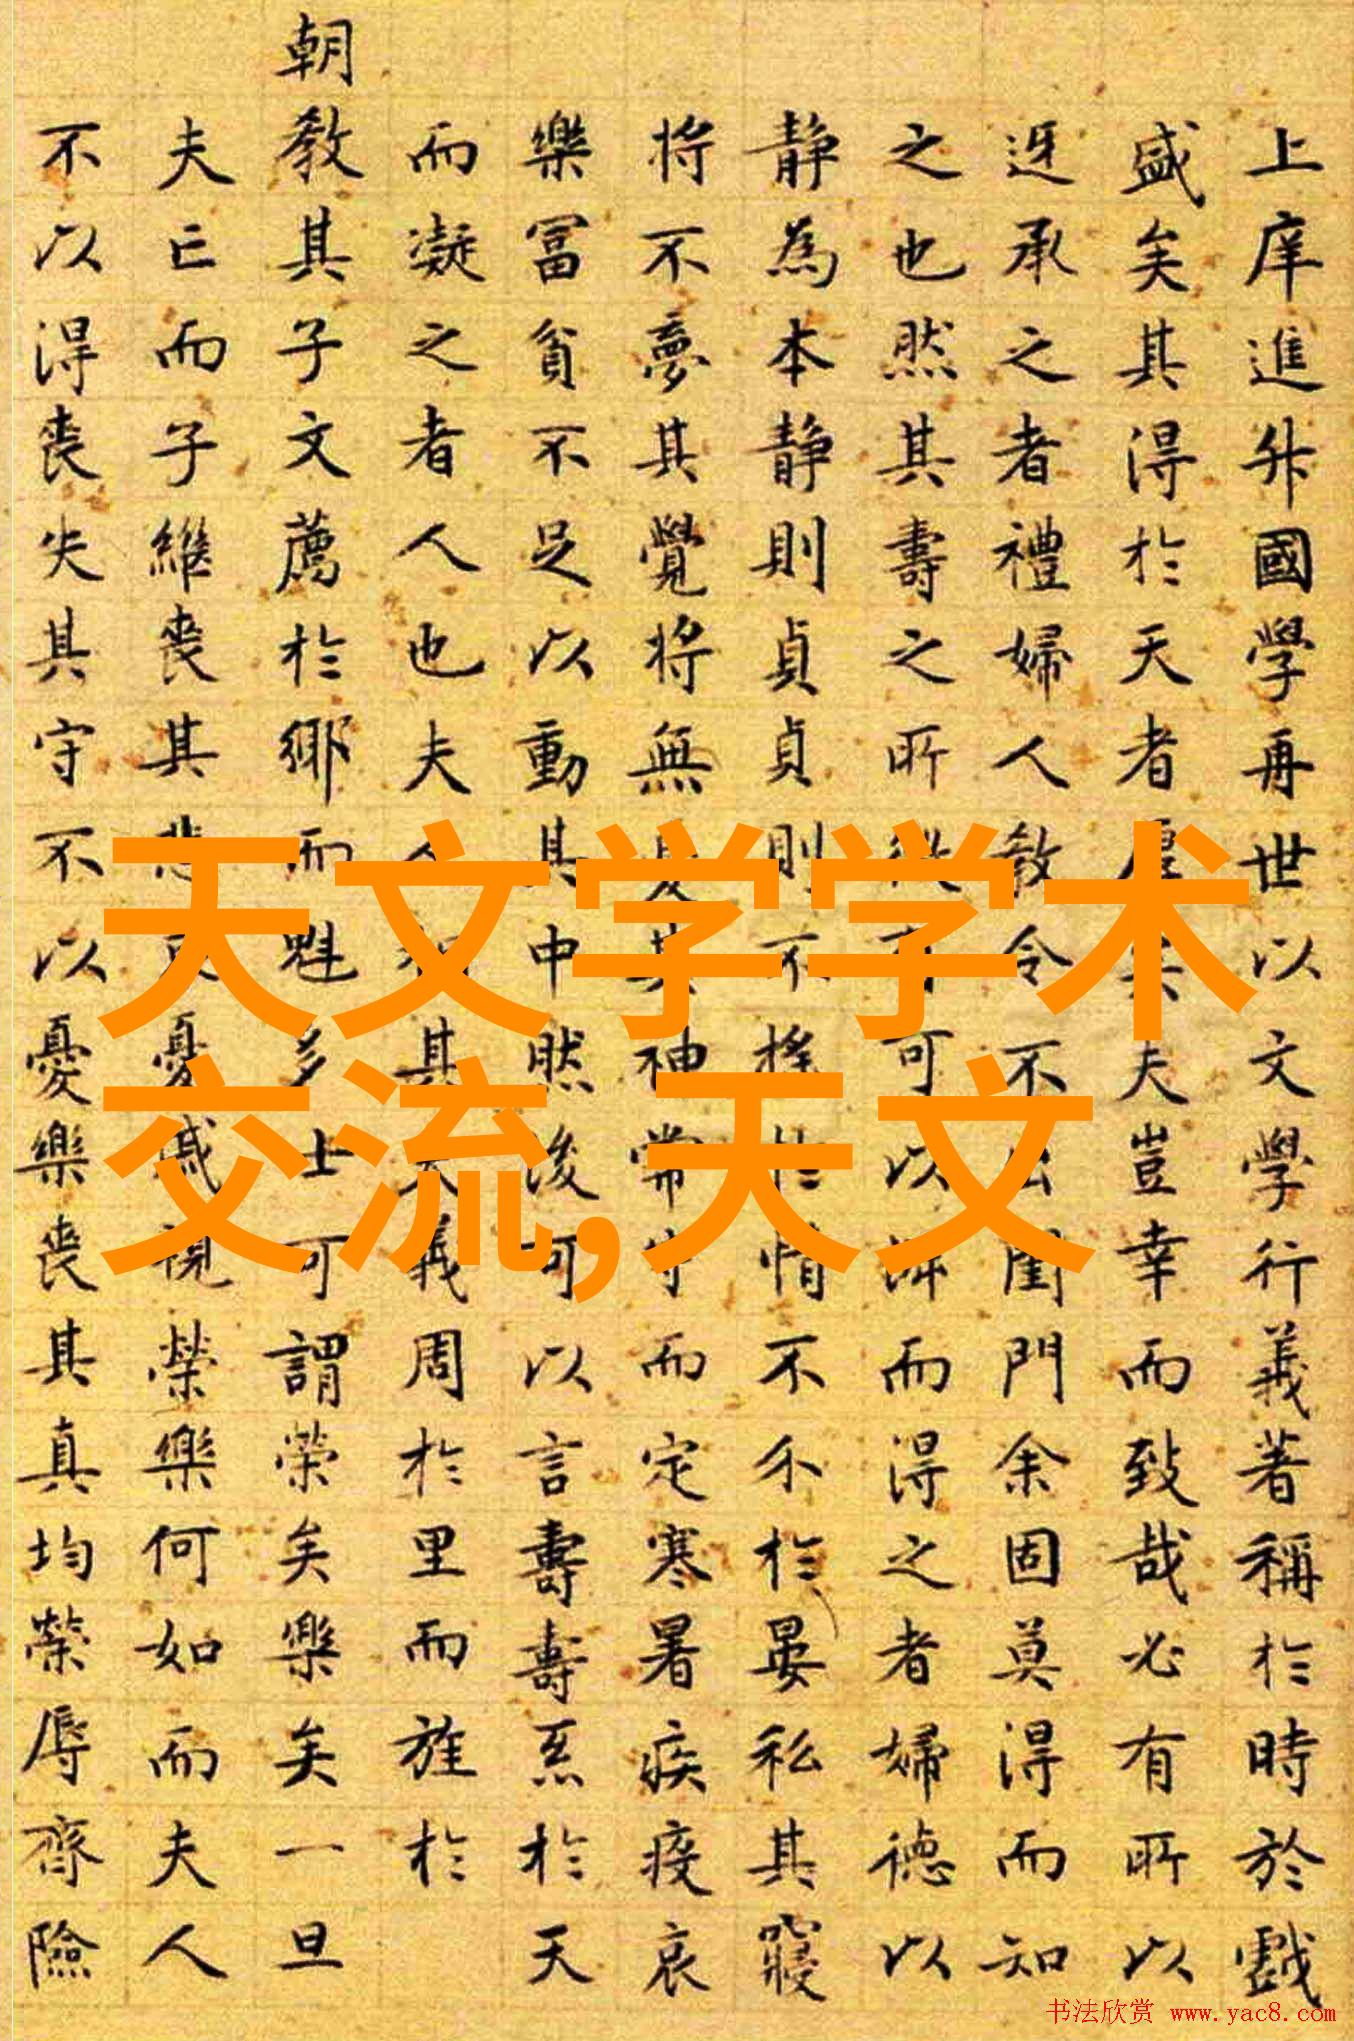 天文学学术
交流,天文
上庠進升國學再世以文學行義著稱於時於戲
盛矣其得於天者厚矣夫豈幸而致哉必有所以
迓承之者禮婦人教令不出閨門余固莫得而知
之也然其壽之所從可以而得之者婦德以
靜為本靜則貞貞則不搖於情不尒於晏私其寢
將不夢其覺將無憂其神常守而定寒暑疾疫哀
樂冨貧不足以動其中然後可以言壽壽系於天
而凝之者人也夫人其義周於里而旌於
朝教其子文薦於鄉而魁多士可謂榮矣樂矣一旦
夫亡而子繼喪其悲哀憂戚視榮樂何如而夫人
不以得喪失其守不以憂樂喪其真均榮辱齊險
书法欣赏 www.yac8.com